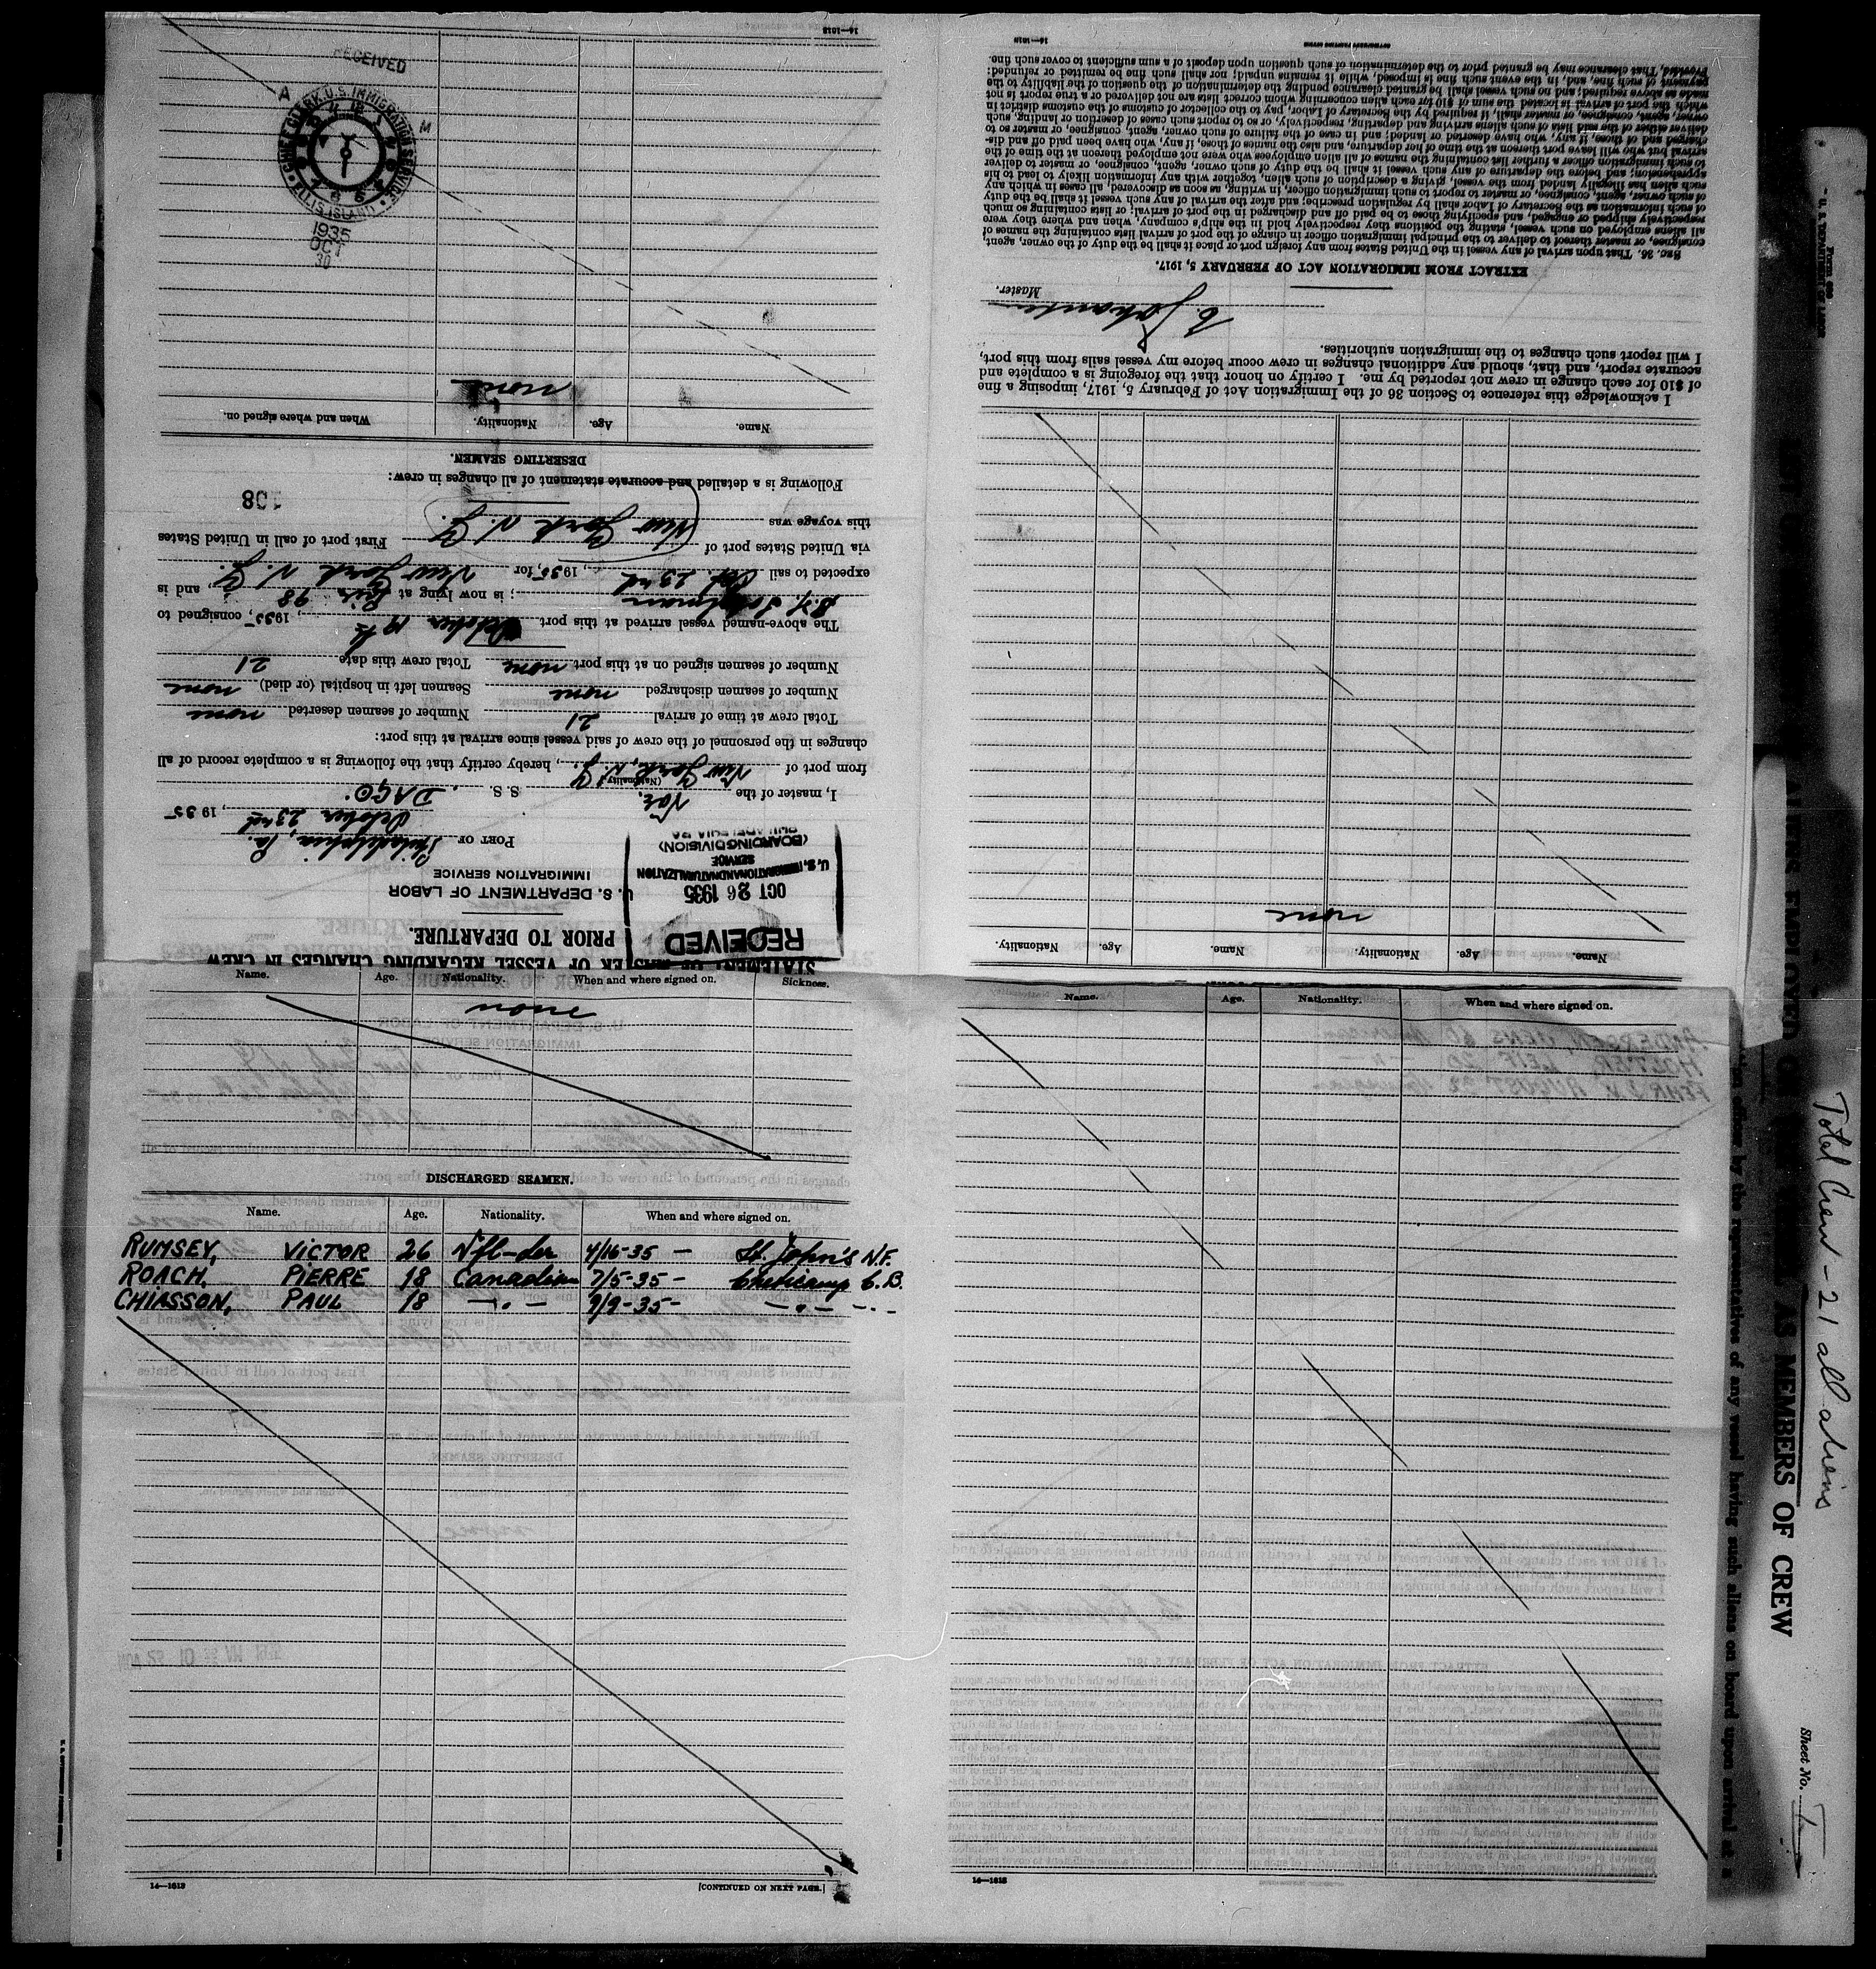 STATEMENT OF MASTER OF VESSEL REGARDING CHANGES IN CREW
PRIOR TO DEPARTURE.
RECEIVED
OCT 26 1935
U.S. IMMIGRATION AND NATURALIZATION
SERVICE
(BOARDING DIVISION)
PHILADELPHIA PA
U. S. DEPARTMENT OF LABOR
IMMIGRATION SERVICE
PORT OF Philadelphia, Pa.
October 23rd, 1935
I, master of the Nor. S. S. DAGO.
(Nationality)
from port of New York, N.Y., hereby certify that the following is a complete record of all
changes in the personnel of the crew of said vessel since arrival at this port:
Total crew at time of arrival 21 Number of seamen deserted none
Number of seamen discharged none Seamen left in hospital (or died) none
Number of seamen signed on at this port none Total crew this date 21
The above-named vessel arrived at this port October 19th, 1935, consigned to
; is now lying at Pier 98, and is
expected to sail Oct. 23rd, 1935, for New York N.Y.
via United States port of First port of call in United States
this voyage was New York N.Y.
198
Following is a detailed and accurate statement of all changes in crew:
DESERTING SEAMEN.
Name. Age. Nationality. When and where signed on.
none
RECEIVED
A M
CHIEF CLERK U.S. IMMIGRATION SERVICE
ELLIS ISLAND
1935
OCT
30
14—1618
Name. Age. Nationality. Name. Age. Nationality.
none
I acknowledge this reference to Section 36 of the Immigration Act of February 5, 1917, imposing a fine
of $10 for each change in crew not reported by me. I certify on honor that the foregoing is a complete and
accurate report, and that, should any additional changes in crew occur before my vessel sails from this port,
I will report such changes to the immigration authorities.
Master.
EXTRACT FROM IMMIGRATION ACT OF FEBRUARY 5, 1917.
SEC. 36. That upon arrival of any vessel in the United States from any foreign port or place it shall be the duty of the owner, agent,
consignee, or master thereof to deliver to the principal immigration officer in charge of the port of arrival lists containing the names of
all aliens employed on such vessel, stating the positions they respectively hold in the ship's company, when and where they were
respectively shipped or engaged, and specifying those to be paid off and discharged in the port of arrival; or lists containing so much
of such information as the Secretary of Labor shall by regulation prescribe; and after the arrival of any such vessel it shall be the duty
of such owner, agent, consignee, or master to report to such immigration officer, in writing, as soon as discovered, all cases in which any
such alien has illegally landed from the vessel, giving a description of such alien, together with any information likely to lead to his
apprehension; and before the departure of any such vessel it shall be the duty of such owner, agent, consignee, or master to deliver
to such immigration officer a further list containing the names of all alien employees who were not employed thereon at the time of the
arrival but who will leave port thereon at the time of her departure, and also the names of those, if any, who have been paid off and dis-
charged and of those, if any, who have deserted or landed; and in case of the failure of such owner, agent, consignee, or master so to
deliver either of the said lists of such aliens arriving and departing, respectively, or so to report such cases of desertion or landing, such
owner, agent, consignee, or master, shall, if required by the Secretary of Labor, pay to the collector of customs of the customs district in
which the port of arrival is located the sum of $10 for each alien concerning whom correct lists are not delivered or a true report is not
made as above required; and no such vessel shall be granted clearance pending the determination of the question of the liability to the
payment of such fine, and, in the event such fine is imposed, while it remains unpaid; nor shall such fine be remitted or refunded:
Provided, That clearance may be granted prior to the determination of such question upon deposit of a sum sufficient to cover such fine.
14—1618
Name. Age. Nationality. When and where signed on. Sickness.
none
DISCHARGED SEAMEN.
Name. Age. Nationality. When and where signed on.
RUMSEY, VICTOR 26 Nfl-der 4/16-35 — St. John's N.F.
ROACH, PIERRE 18 Canadian 7/5-35 - Cheticamp C.B.
CHIASSON, PAUL 18 —.— 9/9-35 - —.— —.—
14—1618
[CONTINUED ON NEXT PAGE.]
Name. Age. Nationality. When and where signed on.
14—1618
Form 680
U. S. DEPARTMENT OF LABOR
ALIENS EMPLOYED ON AS MEMBERS OF CREW
by the representatives of any vessel having such aliens on board upon arrival at a
Total Crew - 21 all aliens
Sheet No.